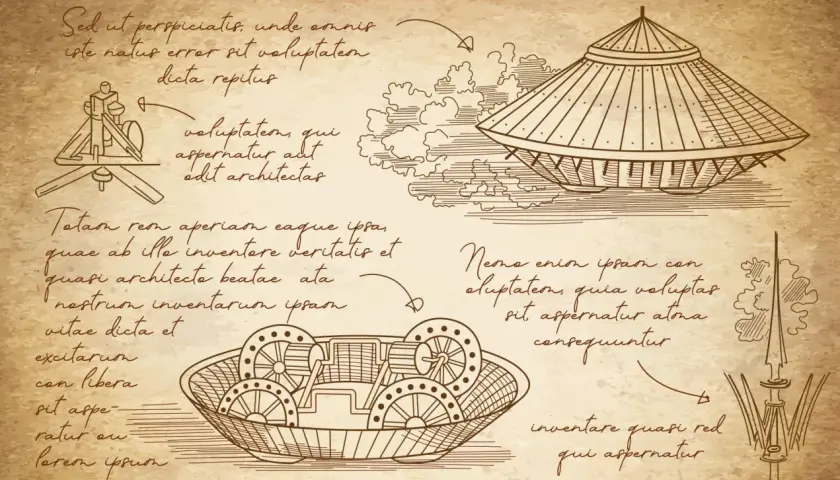 Sed ut perspiciatis, unde omnis
iste natus error sit voluptatem
dicta repitus
voluptatem, qui
aspernatur aut
odit architectas
Totam rem aperiam eaque ipsa,
quae ab illo inventore veritatis et
quasi architecto beatae ata
nostrum inventarum ipsam
vitae dicta et
excitarum
con libera
sit aspe-
ratur ou
lorem ipsum
Nemo enim ipsam con
oluptatem, quia voluptas
sit, aspernatur atma
consequuntur
inventare quasi red
qui aspernatur